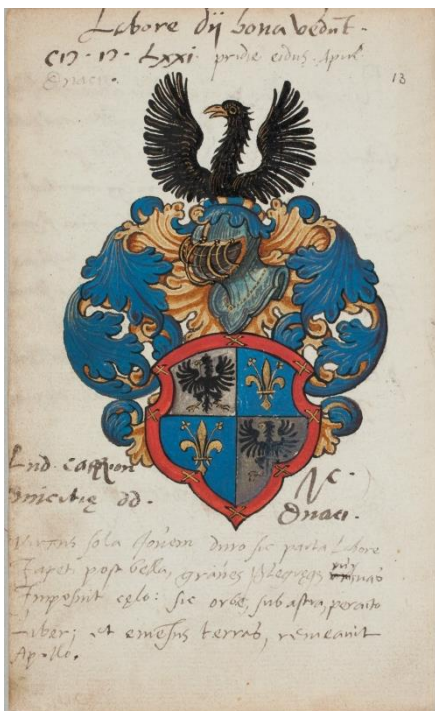 Labore dij bona vēdūt.
CIƆ·IƆ·LXXI· pridie eidus April
Duaci.
13
Lud. Carrion
amicitię dd.
Duaci.
Virtus sola Jovem duro sic parta Labore
Iapeti post bella, graves
Imposuit cęlo: sic orbē, sub astra, peracto
Liber; et emēsus terras, remeavit
Apollo.